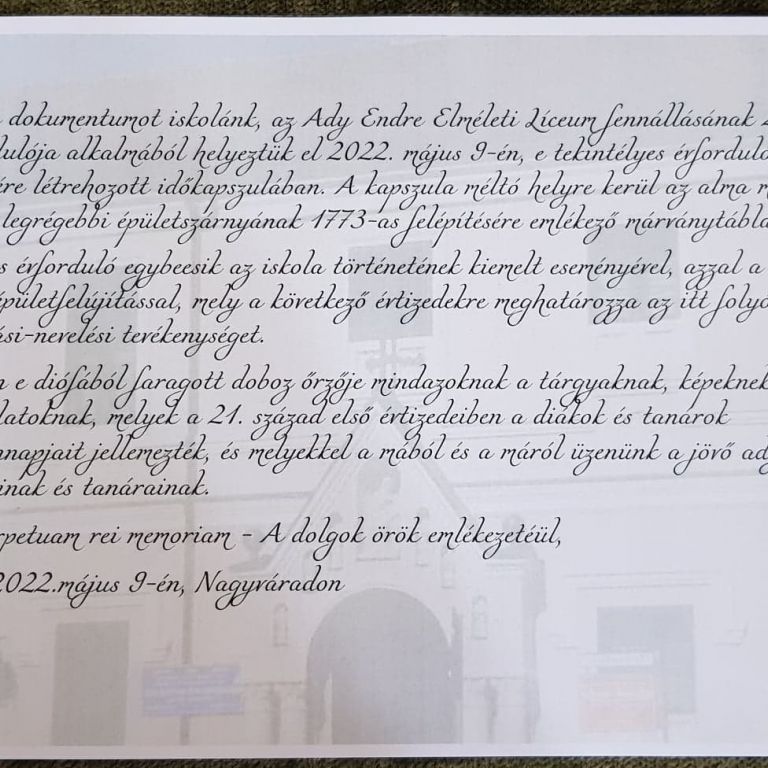 dokumentumot iskolánk, az Ady Endre Elméleti Líceum fennállásának
dulója alkalmából helyeztük el 2022. május 9-én, e tekintélyes évforduló
ére létrehozott időkapszulában. A kapszula méltó helyre kerül az alma m
legrégebbi épületszárnyának 1773-as felépítésére emlékező márványtábla
s évforduló egybeesik az iskola történetének kiemelt eseményével, azzal a
épületfelújítással, mely a következő évtizedekre meghatározza az itt folyó
ási-nevelési tevékenységet.
n e diófából faragott doboz őrzője mindazoknak a tárgyaknak, képeknek
latoknak, melyek a 21. század első évtizedeiben a diákok és tanárok
nnapjait jellemezték, és melyekkel a mából és a máról üzenünk a jövő ad
inak és tanárainak.
rpetuam rei memoriam - A dolgok örök emlékezetéül,
2022.május 9-én, Nagyváradon